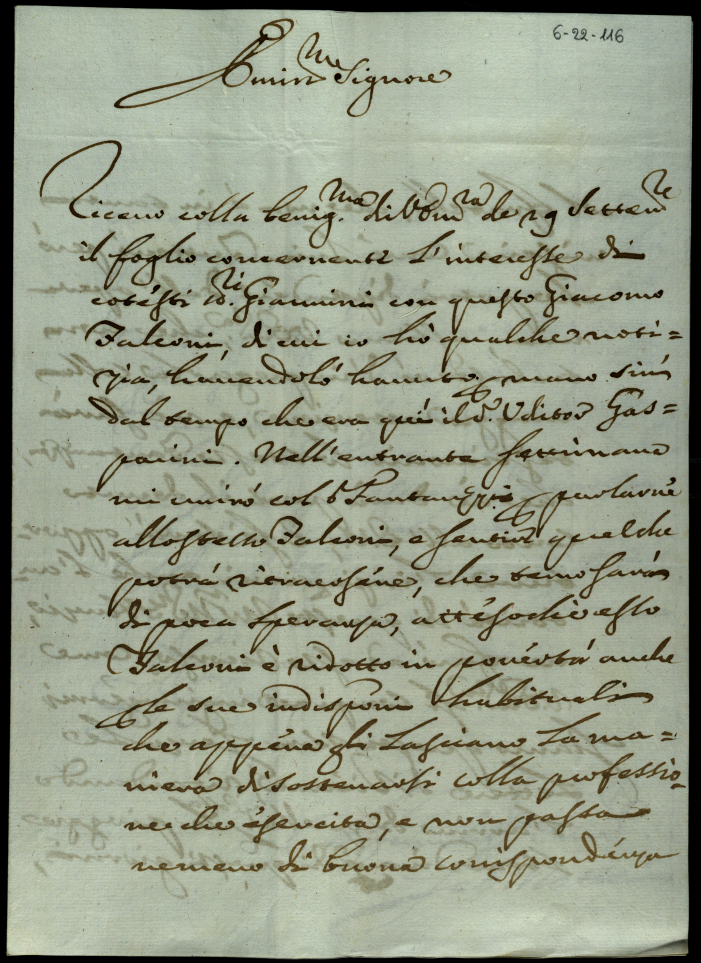 6-22-116
Emin.me Signore
Riceuo colla benig.ma di V Em.za de 29 Settem.re
il foglio concernente l'interesse di
cotesti SS.ri Giannini con questo Giacomo
Falconi, di cui io hò qualche noti=
zia, hauendolo hauuto p mano sin
dal tempo che era quì il S.r Uditor Gas=
parini. Nell'entrante settimana
mi unirò col S.r p parlarne
allo stesso Falconi, e sentir quel che
potrà ritraersene, che temo sarà
di poca speranza, attesoche esso
Falconi è ridotto in pouertà anche
p le sue indisponi habituali
che appena gli lasciano la ma=
niera di sostenersi colla professio=
ne che esercita, e non passa
nemeno di buona corrispondenza